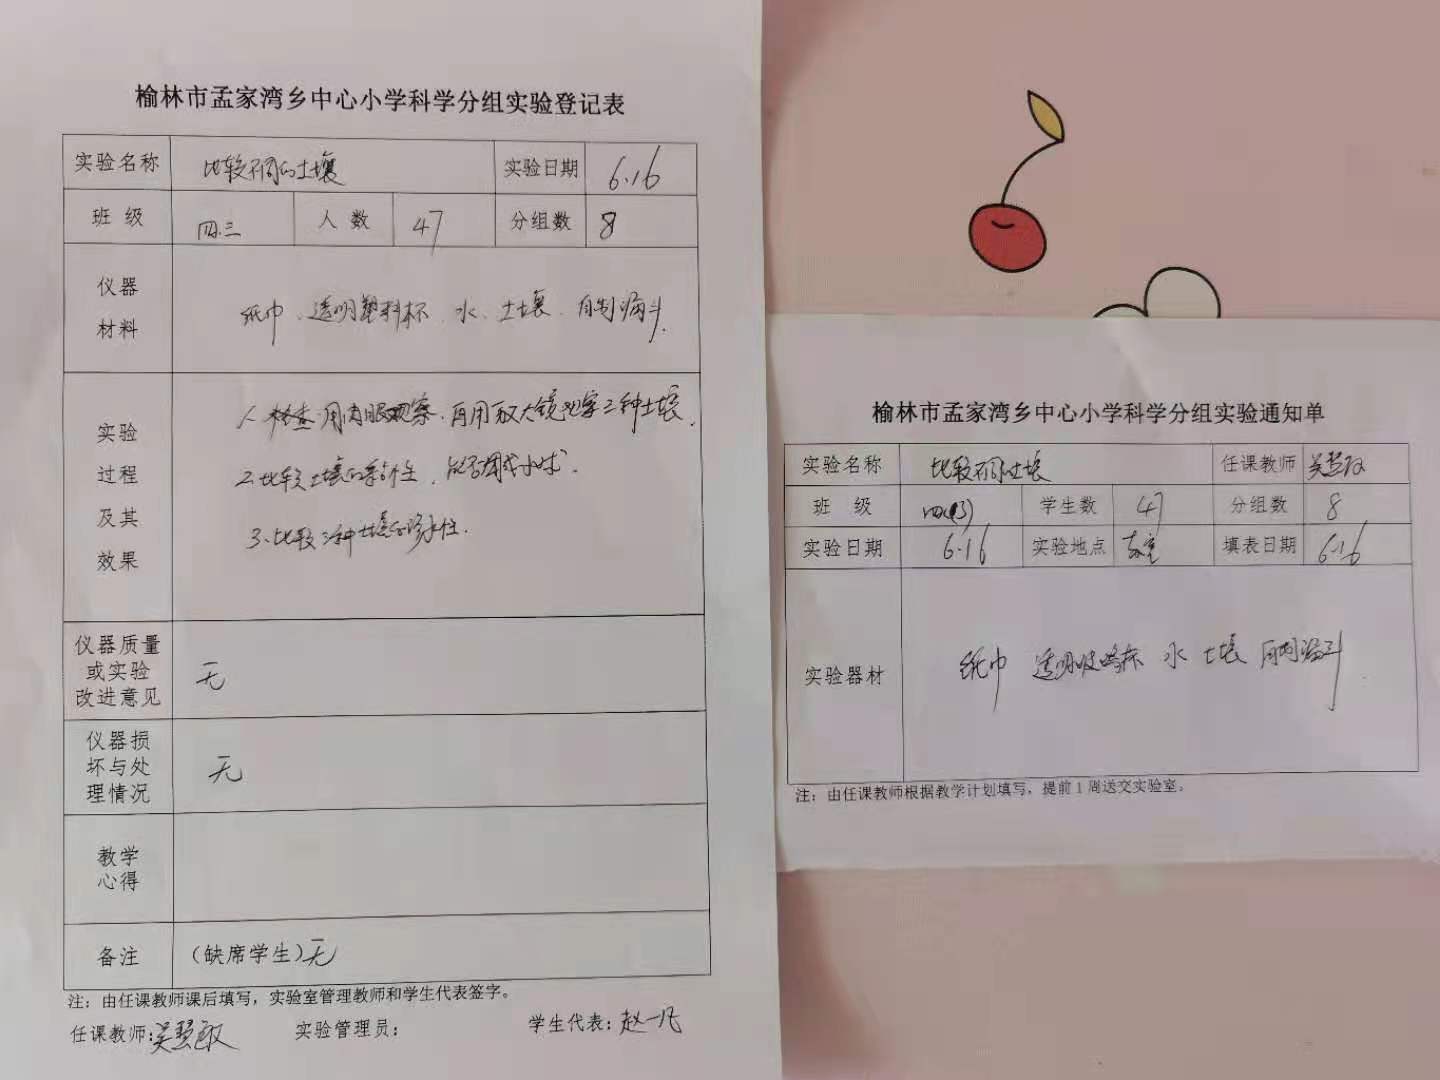 榆林市孟家湾乡中心小学科学分组实验登记表
实验名称 比较不同的土壤 实验日期 6.16
班 级 四.三 人 数 47 分组数 8
仪器
材料
纸巾、透明塑料杯、水、土壤、自制漏斗.
实验
过程
及其
效果
1、用肉眼观察,再用放大镜观察三种土壤.
2.比较土壤的粘性,能否搓成小球.
3、比较三种土壤的渗水性.
仪器质量
或实验
改进意见
无
仪器损
坏与处
理情况
无
教学
心得
备注 (缺席学生)无
注：由任课教师课后填写，实验室管理教师和学生代表签字。
任课教师: 吴慧敏 实验管理员： 学生代表: 赵一凡
榆林市孟家湾乡中心小学科学分组实验通知单
实验名称 比较不同土壤 任课教师 吴慧敏
班 级 四(3) 学生数 47 分组数 8
实验日期 6.16 实验地点 教室 填表日期 6.16
实验器材 纸巾 透明玻璃杯 水 土壤 自制漏斗
注：由任课教师根据教学计划填写，提前1周送交实验室。